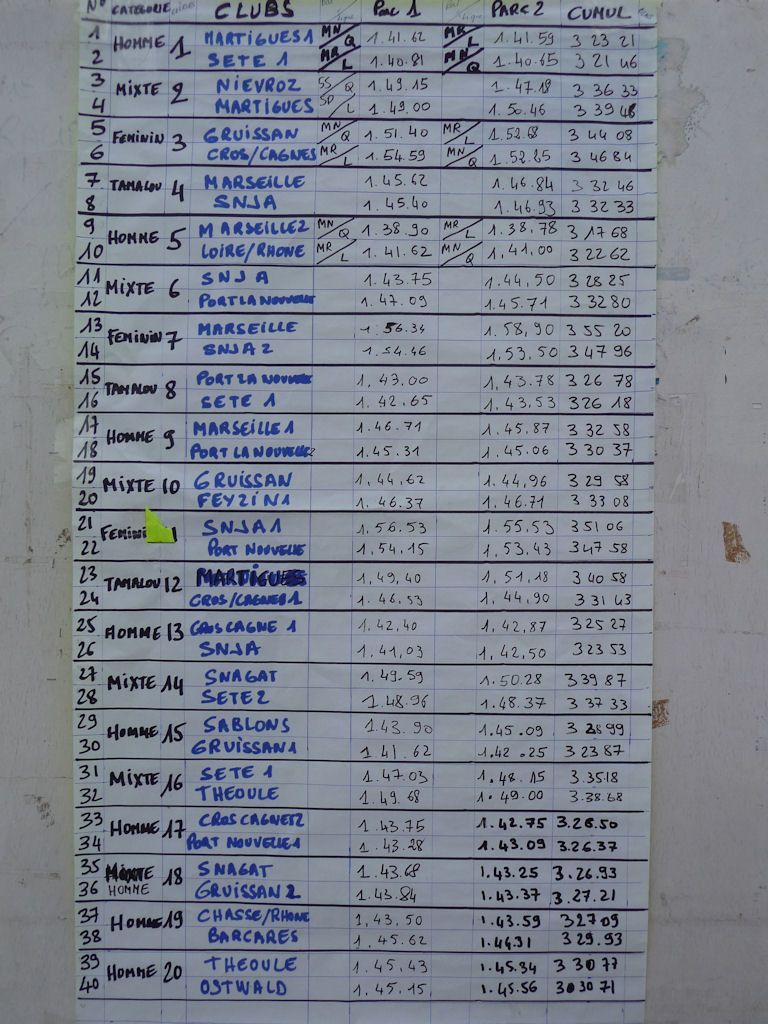 N° CATEGORIE CLUBS Parc 1 PARC 2 CUMUL
1 HOMME 1 MARTIGUES 1 MN/Q 1.41.62 MR/L 1.41.59 3 23 21
2 SETE 1 MR/L 1.40.81 MN/Q 1.40.65 3 21 46
3 MIXTE 2 NIEVROZ SS/Q 1.49.15 1.47.18 3 36 33
4 MARTIGUES SD/L 1.49.00 1.50.46 3 39 46
5 FEMININ 3 GRUISSAN MN/Q 1.51.40 MR/L 1.52.68 3 44 08
6 CROS/CAGNES MR/L 1.54.59 MN/Q 1.52.25 3 46 84
7 TAMALOU 4 MARSEILLE 1.45.62 1.46.84 3 32 46
8 SNJA 1.45.40 1.46.93 3 32 33
9 HOMME 5 MARSEILLE2 MN/Q 1.38.90 MR/L 1.38.78 3 17 68
10 LOIRE/RHONE MR/L 1.41.62 MN/Q 1.41.00 3 22 62
11 MIXTE 6 SNJA 1.43.75 1.44,50 3 28 25
12 PORT LA NOUVELLE 1.47.09 1.45.71 3 32 80
13 FEMININ 7 MARSEILLE 1.56.34 1.58,90 3 55 20
14 SNJA2 1.54.46 1,53,50 3 47 96
15 TAMALOU 8 PORT LA NOUVELLE 1,43.00 1,43.78 3 26 78
16 SETE 1 1.42.65 1,43.53 326 18
17 HOMME 9 MARSEILLE 1 1.46.71 1.45.87 3 32 58
18 PORT LA NOUVELLE2 1.45.31 1.45.06 3 30 37
19 MIXTE 10 GRUISSAN 1.44,62 1.44,96 3 29 58
20 FEYZIN 1 1.46.37 1.46.71 3 33 08
21 SNJA 1 1.56.53 1.55.53 351 06
22 PORT NOUVELLE 1,54,15 1,53,43 347 58
23 TAMALOU 12 MARTIGUES 1,49,40 1.51,18 3 40 58
24 CROS/CAGNES 1 1.46.53 1.44,90 3 31 43
25 HOMME 13 CROS CAGNE 1 1.42,40 1.42,87 3 25 27
26 SNJA 1.41,03 1,42,50 323 53
27 MIXTE 14 SNAGAT 1.49.59 1.50.28 3 39 87
28 SETE 2 1.48.96 1.48.37 3 37 33
29 HOMME 15 SABLONS 1.43.90 1.45.09 3 28 99
30 GRUISSAN 1 1 41.62 1.42.25 3 23 87
31 MIXTE 16 SETE 1 1.47.03 1.48.15 3.35.18
32 THEOULE 1.49.68 1.49.00 3.38.68
33 HOMME 17 CROS CAGNET2 1.43.75 1.42.75 3.26.50
34 PORT NOUVELLE 1 1.43.28 1.43.09 3.26.37
35 18 SNAGAT 1.43.68 1.43.25 3.26.93
36 HOMME GRUISSAN 2 1.43.84 1.43.37 3.27.21
37 HOMME 19 CHASSE/RHONE 1,43,50 1.43.59 327 09
38 BARCARES 1,45.62 3 29.93
39 HOMME 20 THEOULE 1.45,43 1.45.34 3 30 77
40 OSTWALD 1.45.15 1.45.56 71